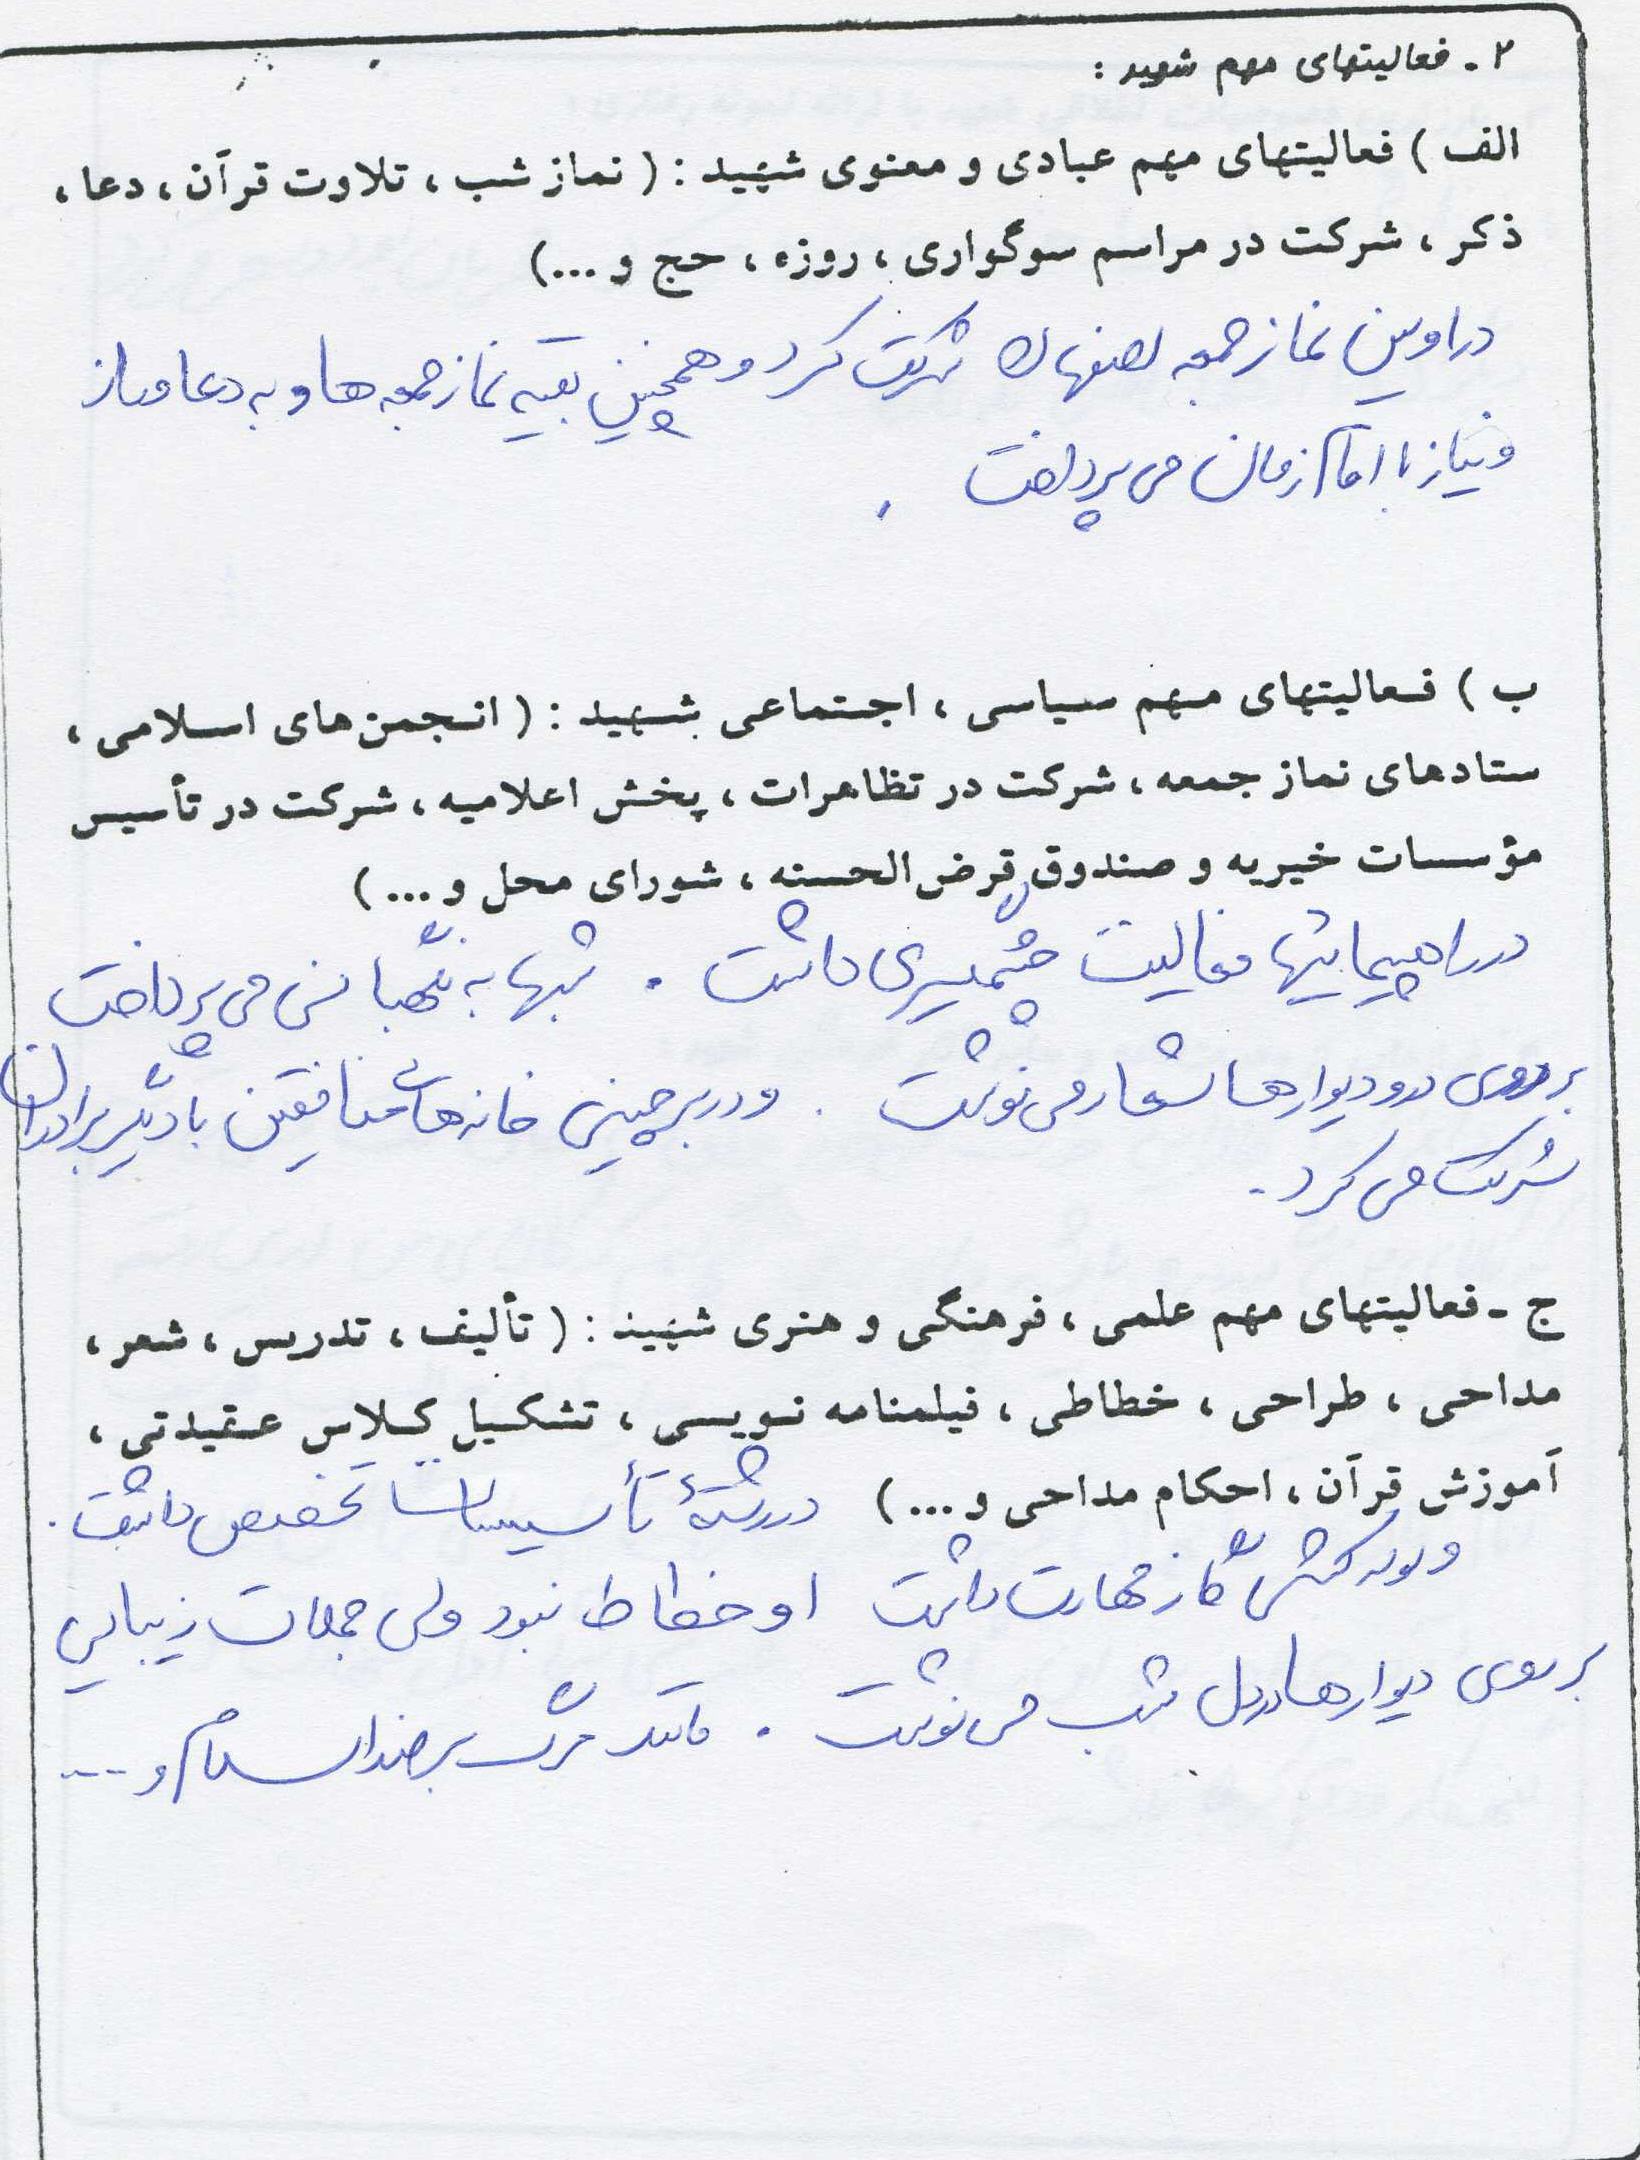 ۲ - فعالیتهای مهم شهید :
الف ) فعالیتهای مهم عبادی و معنوی شهید : ( نماز شب ، تلاوت قرآن ، دعا ،
ذکر ، شرکت در مراسم سوگواری ، روزه ، حج و ...)
در اولین نماز جمعه اصفهان شرکت کرد و همچنین بقیه نماز جمعه ها و به دعا و راز
و نیاز با امام زمان می پرداخت .
ب ) فعالیتهای مهم سیاسی ، اجتماعی شهید : ( انجمن های اسلامی ،
ستادهای نماز جمعه ، شرکت در تظاهرات ، پخش اعلامیه ، شرکت در تأسیس
مؤسسات خیریه و صندوق قرض الحسنه ، شورای محل و ... )
در راهپیمائیها فعالیت چشمگیری داشت . شبها به نگهبانی می پرداخت
بر روی در و دیوارها شعار می نوشت . و در برچینی خانه های منافقین با دیگر برادران
شرکت می کرد .
ج - فعالیتهای مهم علمی ، فرهنگی و هنری شهید : ( تألیف ، تدریس ، شعر ،
مداحی ، طراحی ، خطاطی ، فیلمنامه نویسی ، تشکیل کلاس عقیدتی ،
آموزش قرآن ، احکام مداحی و ... ) در رشتهٔ تأسیسات تخصص داشت .
و لوله کشی گاز مهارت داشت او خطاط نبود ولی جملات زیبایی
بر روی دیوارها در دل شب می نوشت . مانند مرگ بر ضد اسلام و ...